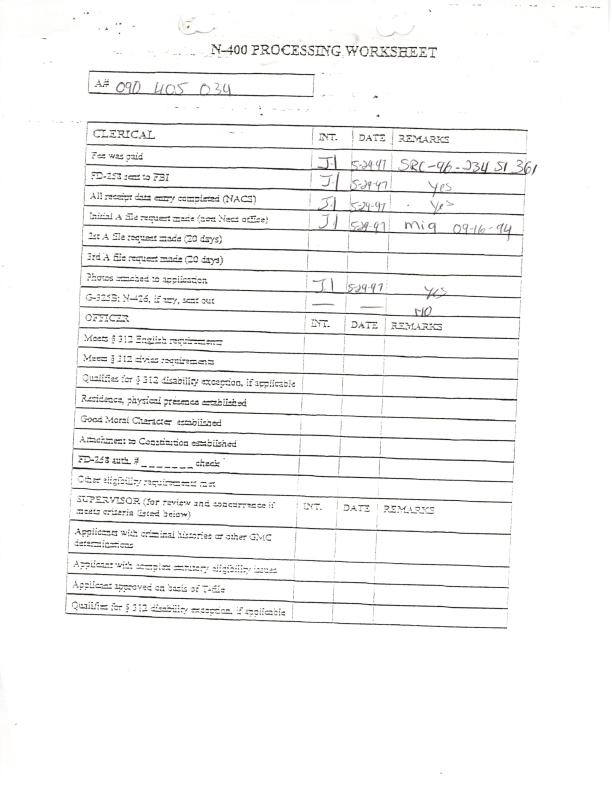 N-400 PROCESSING WORKSHEET
A# 090 405 034
CLERICAL INT. DATE REMARKS
Fee was paid J.I 5-29-97 SRC-96-234 51 361
FD-258 sent to FBI J.I 5-29-97 Yes
All receipt data entry completed (NACS) JI 5-29-97 Yes
Initial A file request made (non Nacs office) JI 5-29-97 mia 09-16-94
2st A file request made (20 days)
3rd A file request made (20 days)
Photos attached to application JI 5-29-97 yes
G-325B; N-426, if any, sent out — — NO
OFFICER INT. DATE REMARKS
Meets § 312 English requirements
Meets § 312 civics requirements
Qualifies for § 312 disability exception, if applicable
Residence, physical presence established
Good Moral Character established
Attachment to Constitution established
FD-258 auth. # _ _ _ _ _ _ _ check
Other eligibility requirements met
SUPERVISOR (for review and concurrence if INT. DATE REMARKS
meets criteria listed below)
Applicant with criminal histories or other GMC
determinations
Applicant with complex statutory eligibility issues
Applicant approved on basis of T-file
Qualifies for § 312 disability exception, if applicable